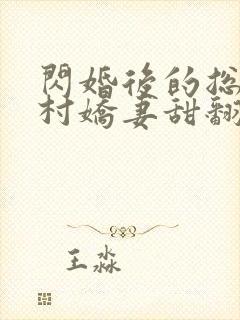 閃婚後的總
村嬌妻甜翻
王淼